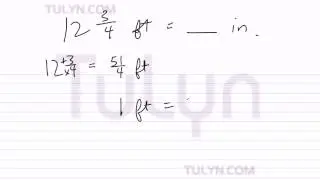 TULYN.COM
12 3/4 ft = ___ in.
12 +3/×4 = 51/4 ft
Tulyn
1 ft =
TULYN.COM